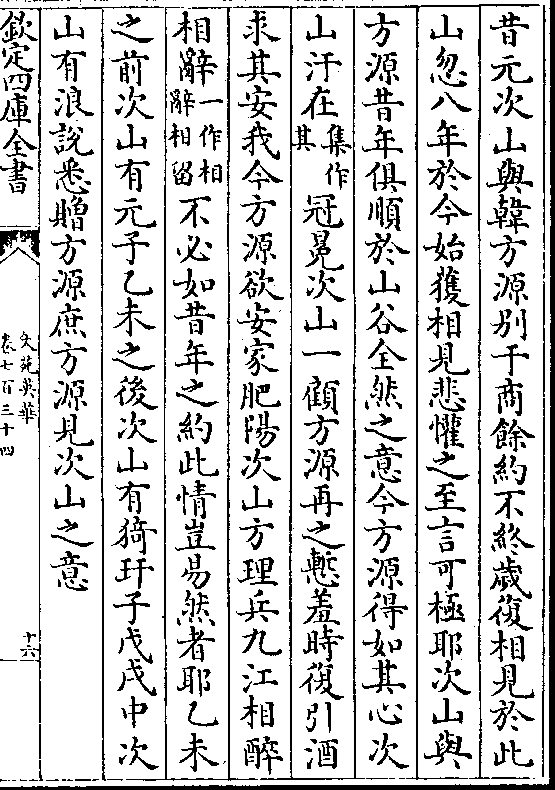 昔元次山與韓方源別于商餘約不終歳復相見於此
山忽八年於今始獲相見悲懽之至言可極耶次山與
方源昔年俱順於山谷全然之意今方源得如其心次
山汙在集作其冠冕次山一顧方源再之慙羞時復引酒
求其安我今方源欲安家肥陽次山方理兵九江相醉
相辭一作相辭相留不必如昔年之約此情豈易然者耶乙未
之前次山有元子乙未之後次山有猗玗子戊戌中次
山有浪說悉贈方源庶方源見次山之意
欽定四庫全書
文苑英華
卷七百三十四
十六